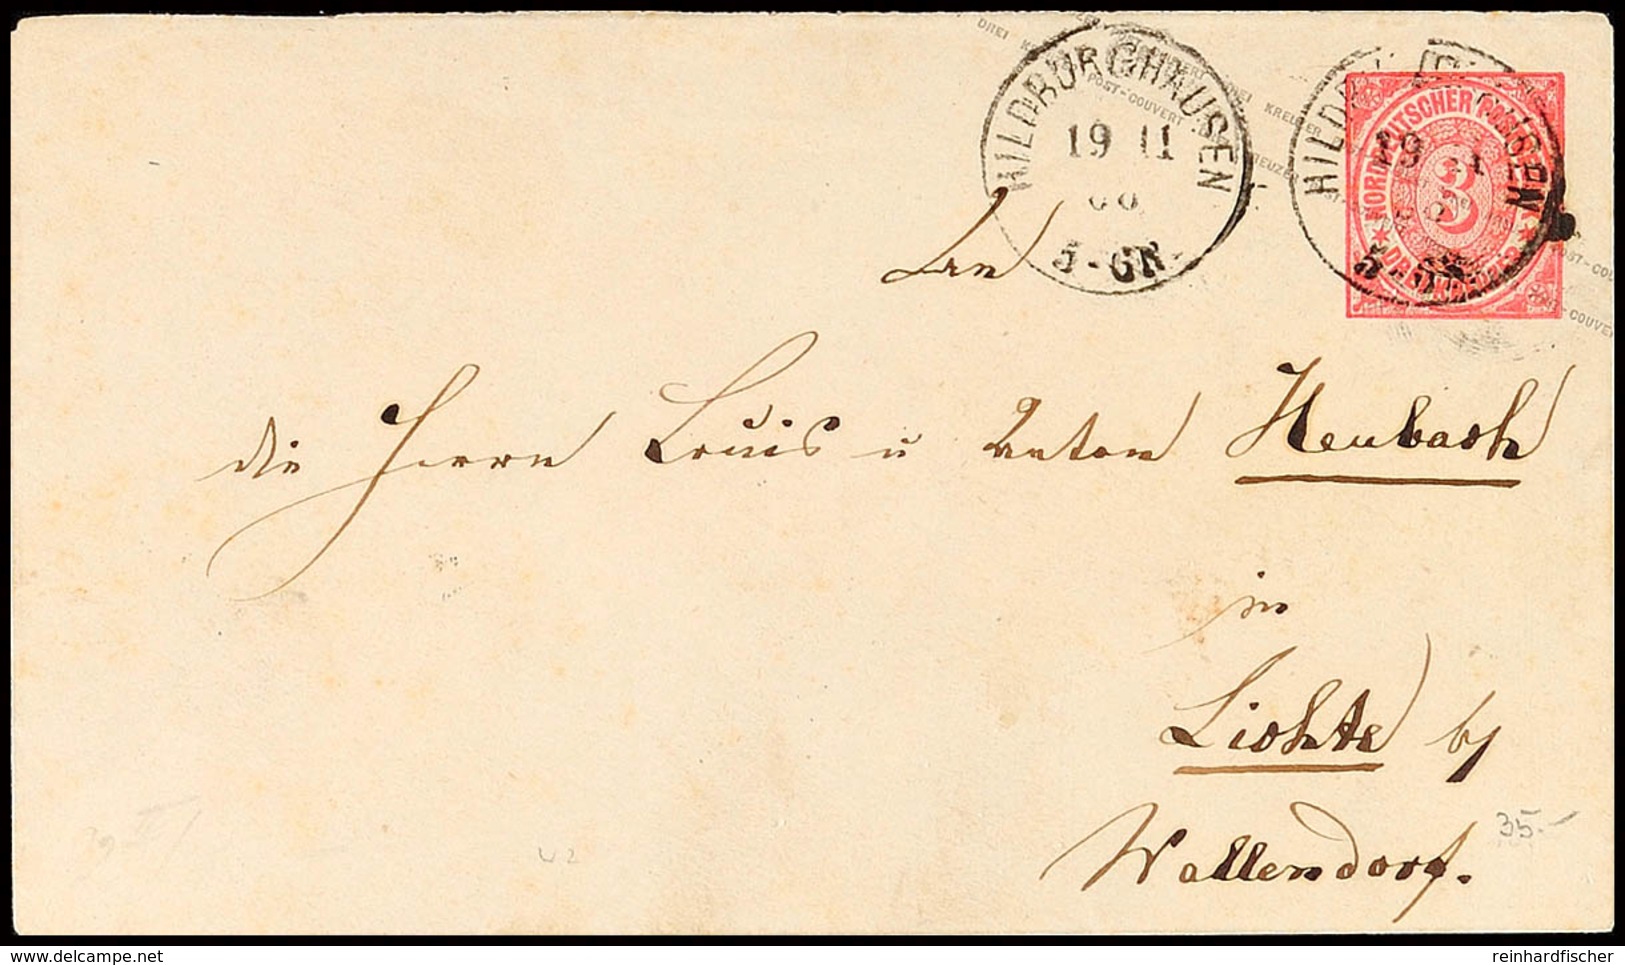 HILDBURGHAUSEN
19 11
68
5-6N.
NORDDEUTSCHER POSTBEZIRK
3
DREI KREUZER
DREI KREUZER POST-COUVERT
An
die Herrn Louis u Anton Heubach
in
Lichte by
Wallendorf.
35.-
delcampe.net
reinhardfischer